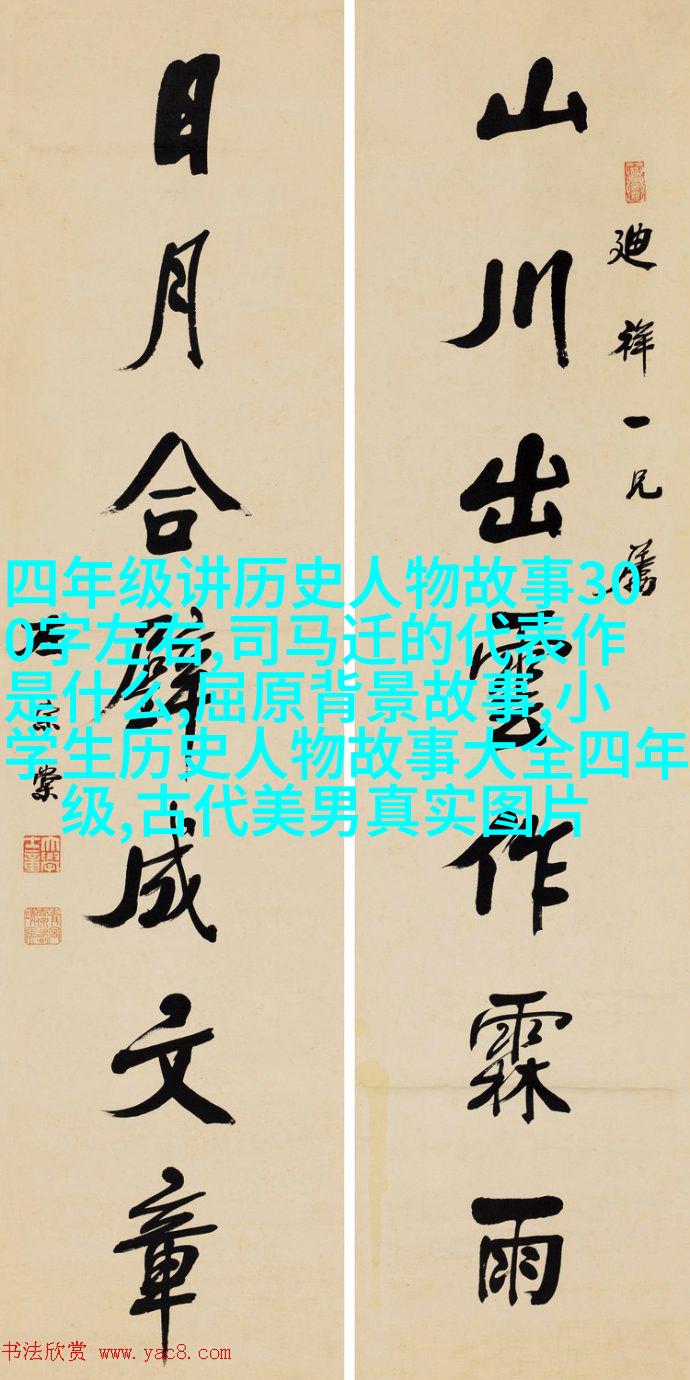 廸祥一兄
山川出雲作霖雨
日月合璧成文章
左宗棠
四年级讲历史人物故事30
0字左右,司马迁的代表作
是什么,屈原背景故事,小
学生历史人物故事大全四年
级,古代美男真实图片
书法欣赏 www.yac8.com